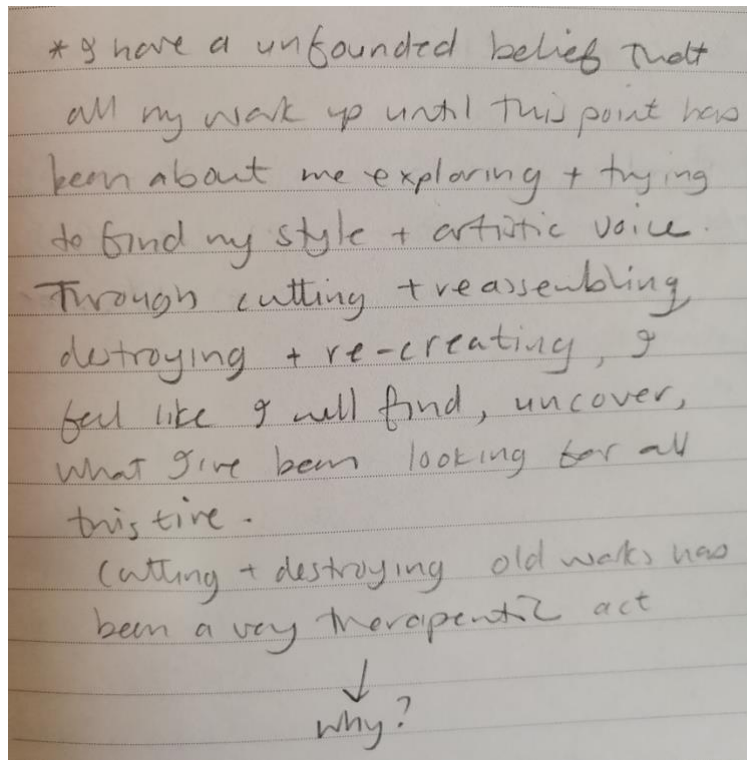 * I have a unfounded belief that
all my work up until this point has
been about me exploring + trying
to find my style + artistic voice.
Through cutting + reassembling,
destroying + re-creating, I
feel like I will find, uncover,
what I've been looking for all
this time.
Cutting + destroying old works has
been a very therapeutic act
↓
why?